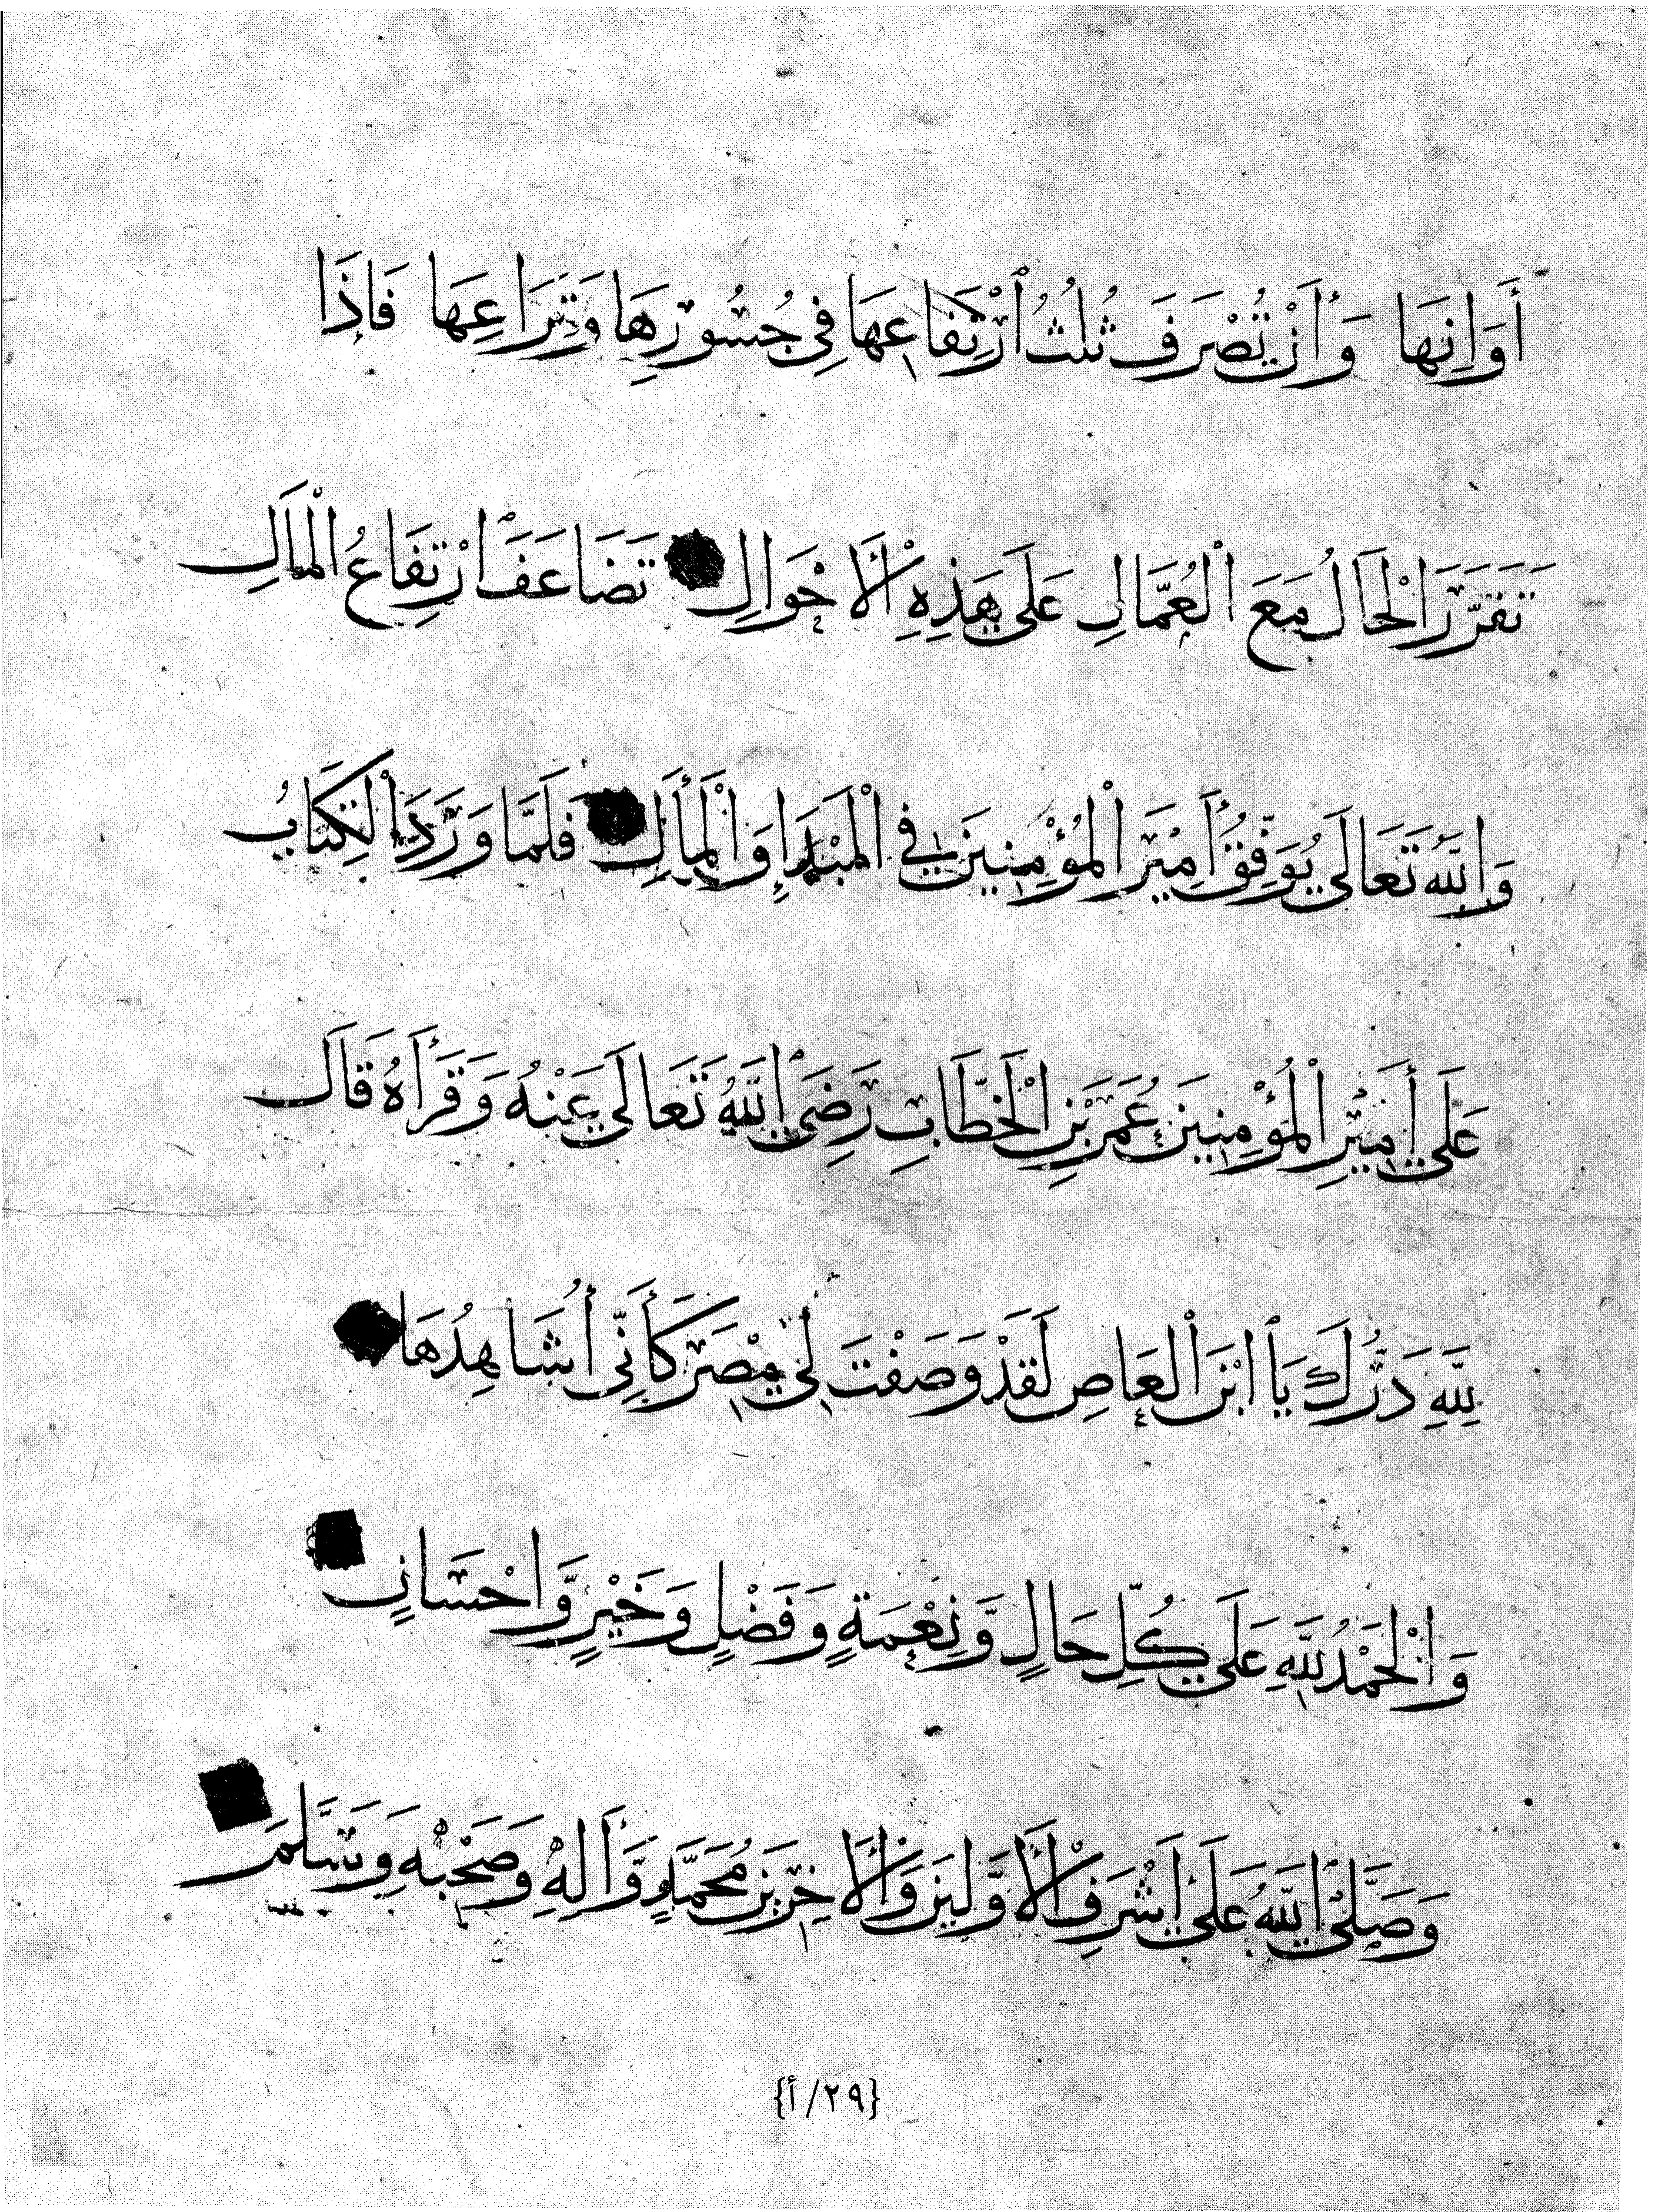 أَوَانِهَا وَأَنْ تُصْرَفَ ثُلُثُ ٱرْتِفَاعِهَا فِي جُسُورِهَا وَتِرَاعِهَا فَإِذَا
تَقَرَّرَ الْحَالُ مَعَ الْعُمَّالِ عَلَى هَذِهِ الْأَحْوَالِ تَضَاعَفَ ٱرْتِفَاعُ الْمَالِ
وَاللَّهُ تَعَالَى يُوَفِّقُ أَمِيرَ الْمُؤْمِنِينَ فِي الْمَبْدَإِ وَالْمَأَلِ فَلَمَّا وَرَدَ الْكِتَابُ
عَلَى أَمِيرِ الْمُؤْمِنِينَ عُمَرَ بْنِ الْخَطَّابِ رَضِيَ اللَّهُ تَعَالَى عَنْهُ وَقَرَأَهُ قَالَ
لِلَّهِ دَرُّكَ يَا ابْنَ الْعَاصِ لَقَدْ وَصَفْتَ لِي مِصْرَ كَأَنِّي أُشَاهِدُهَا
وَالْحَمْدُ لِلَّهِ عَلَى كُلِّ حَالٍ وَّنِعْمَةٍ وَفَضْلٍ وَخَيْرٍ وَّاحْسَانٍ
وَصَلَّى اللَّهُ عَلَى أَشْرَفِ الْأَوَّلِينَ وَالْأَخِرِينَ مُحَمَّدٍ وَّأَلِهِ وَصَحْبِهِ وَسَلَّمَ
{٢٩/أ}